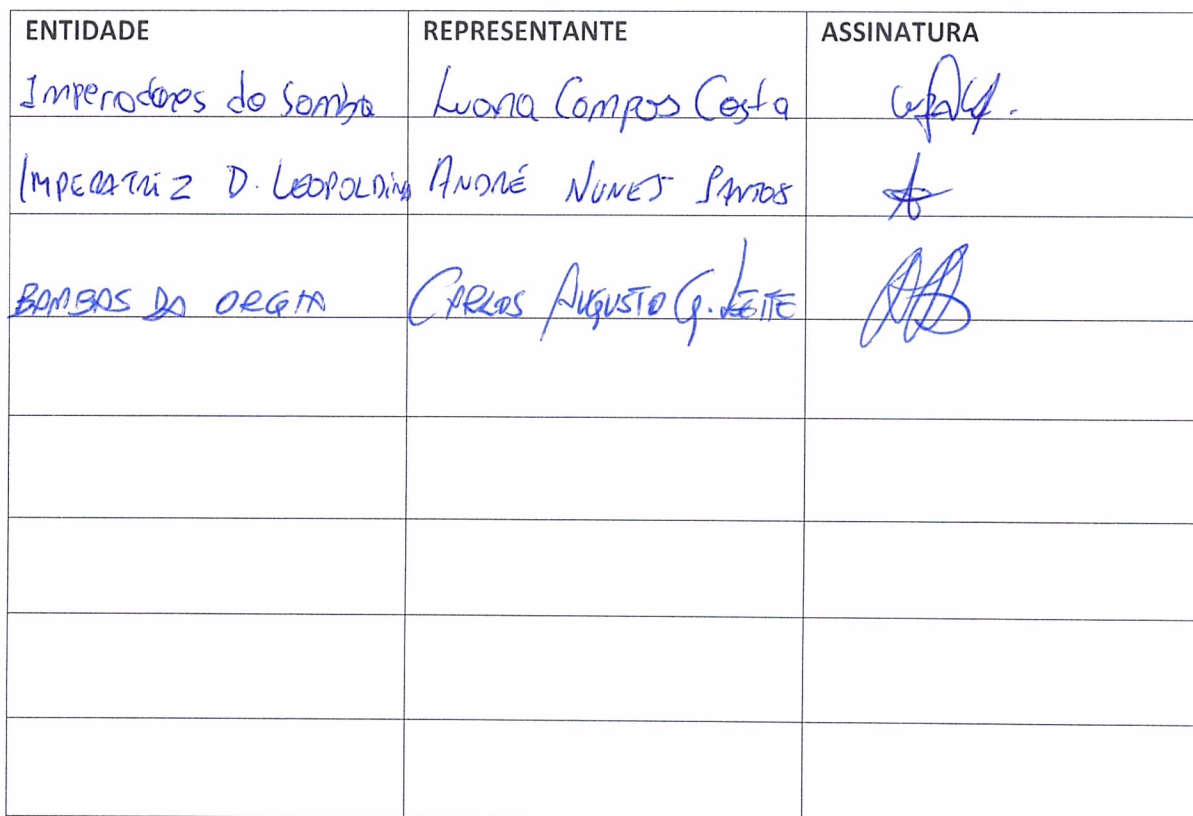 ENTIDADE REPRESENTANTE ASSINATURA
Imperadores do Samba Luana Campos Costa
IMPERATRIZ D. LEOPOLDINA ANDRÉ NUNES SANTOS
BAMBAS DA ORGIA CARLOS AUGUSTO G. LEITE